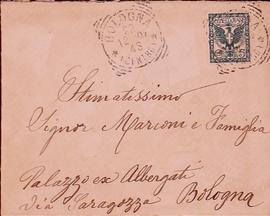 BOLOGNA
Stimatissimo
Signor Marconi e Famiglia
Palazzo ex Albergati
Via Saragozza Bologna